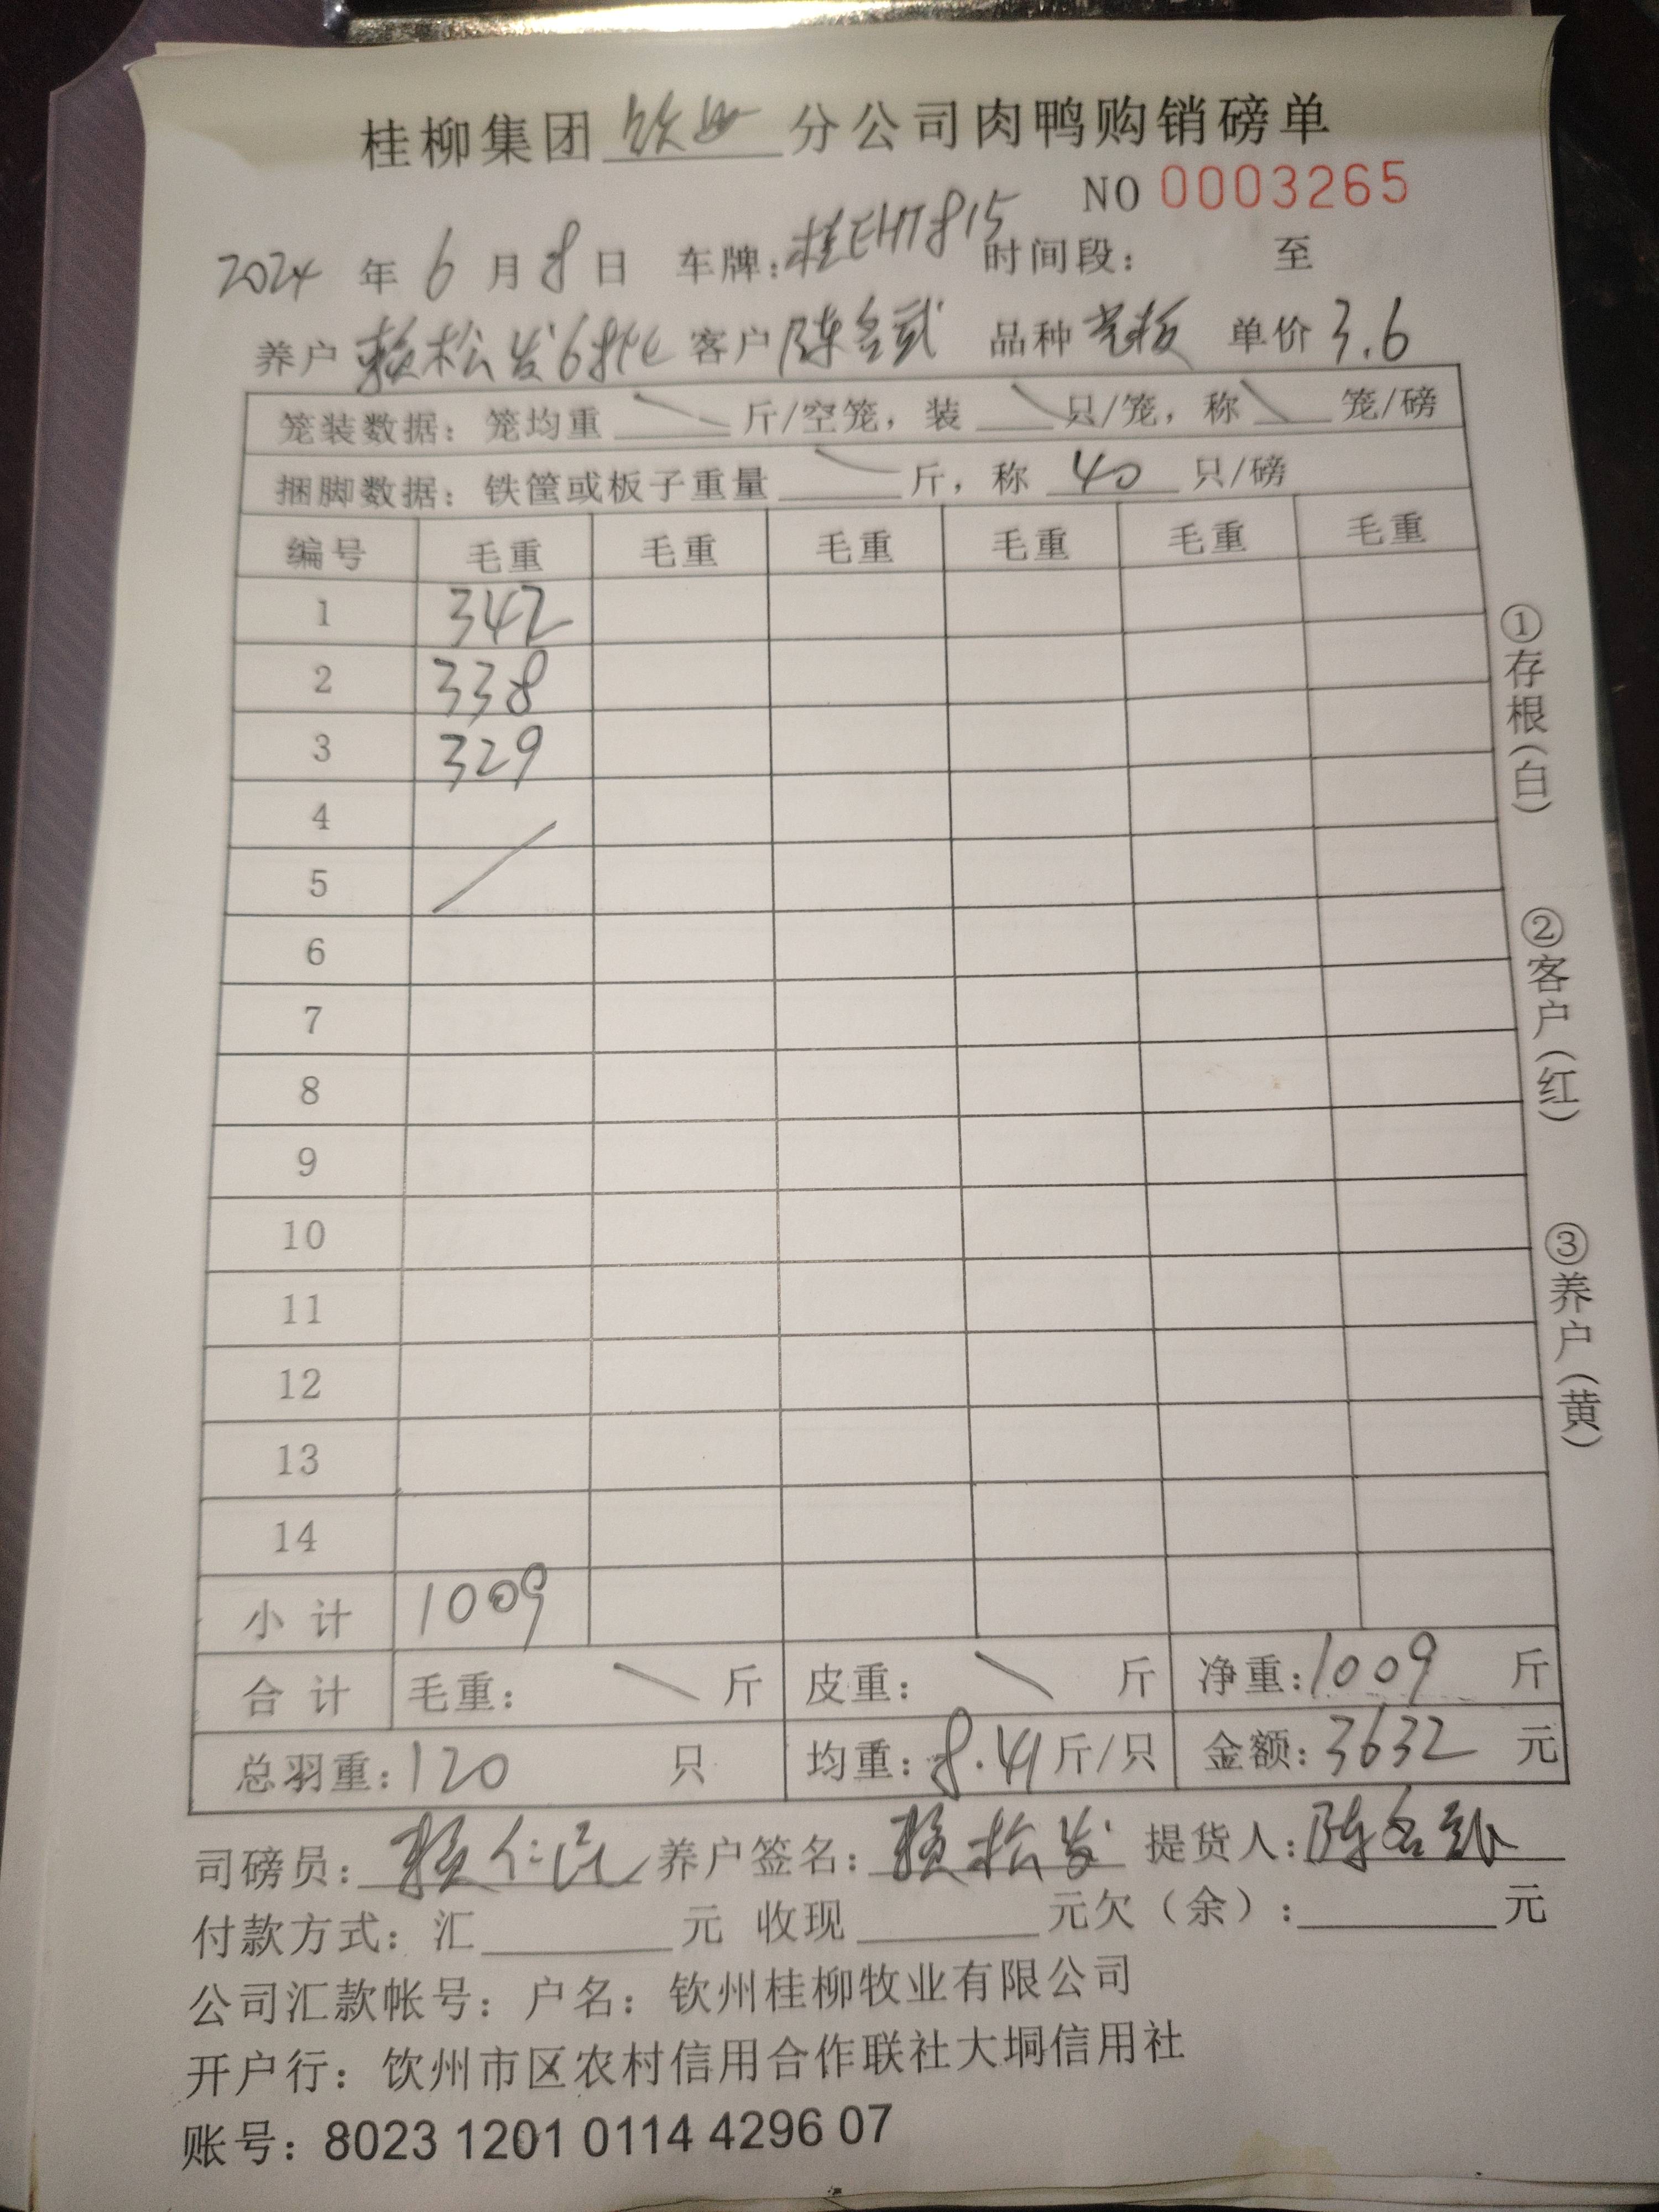 桂柳集团 钦州 分公司肉鸭购销磅单
NO 0003265
2024 年 6 月 8 日 车牌:桂EHT815 时间段: 至
养户 赖松发6批 客户 陈名 品种 单价 3.6
笼装数据: 笼均重 \ 斤/空笼,装 \ 只/笼,称 \ 笼/磅
捆脚数据: 铁筐或板子重量 \ 斤,称 40 只/磅
编号 毛重 毛重 毛重 毛重 毛重 毛重
1 342
2 338
3 329
4
5
6
7
8
9
10
11
12
13
14
小 计 1009
合 计 毛重: \ 斤 皮重: \ 斤 净重:1009 斤
总羽重:120 只 均重:8.41斤/只 金额:3632 元
司磅员: 赖仁 养户签名: 赖松发 提货人:陈名
付款方式: 汇 元 收现 元欠(余): 元
公司汇款帐号: 户名: 钦州桂柳牧业有限公司
开户行: 钦州市区农村信用合作联社大垌信用社
账号: 8023 1201 0114 4296 07
①存根(白)
②客户(红)
③养户(黄)